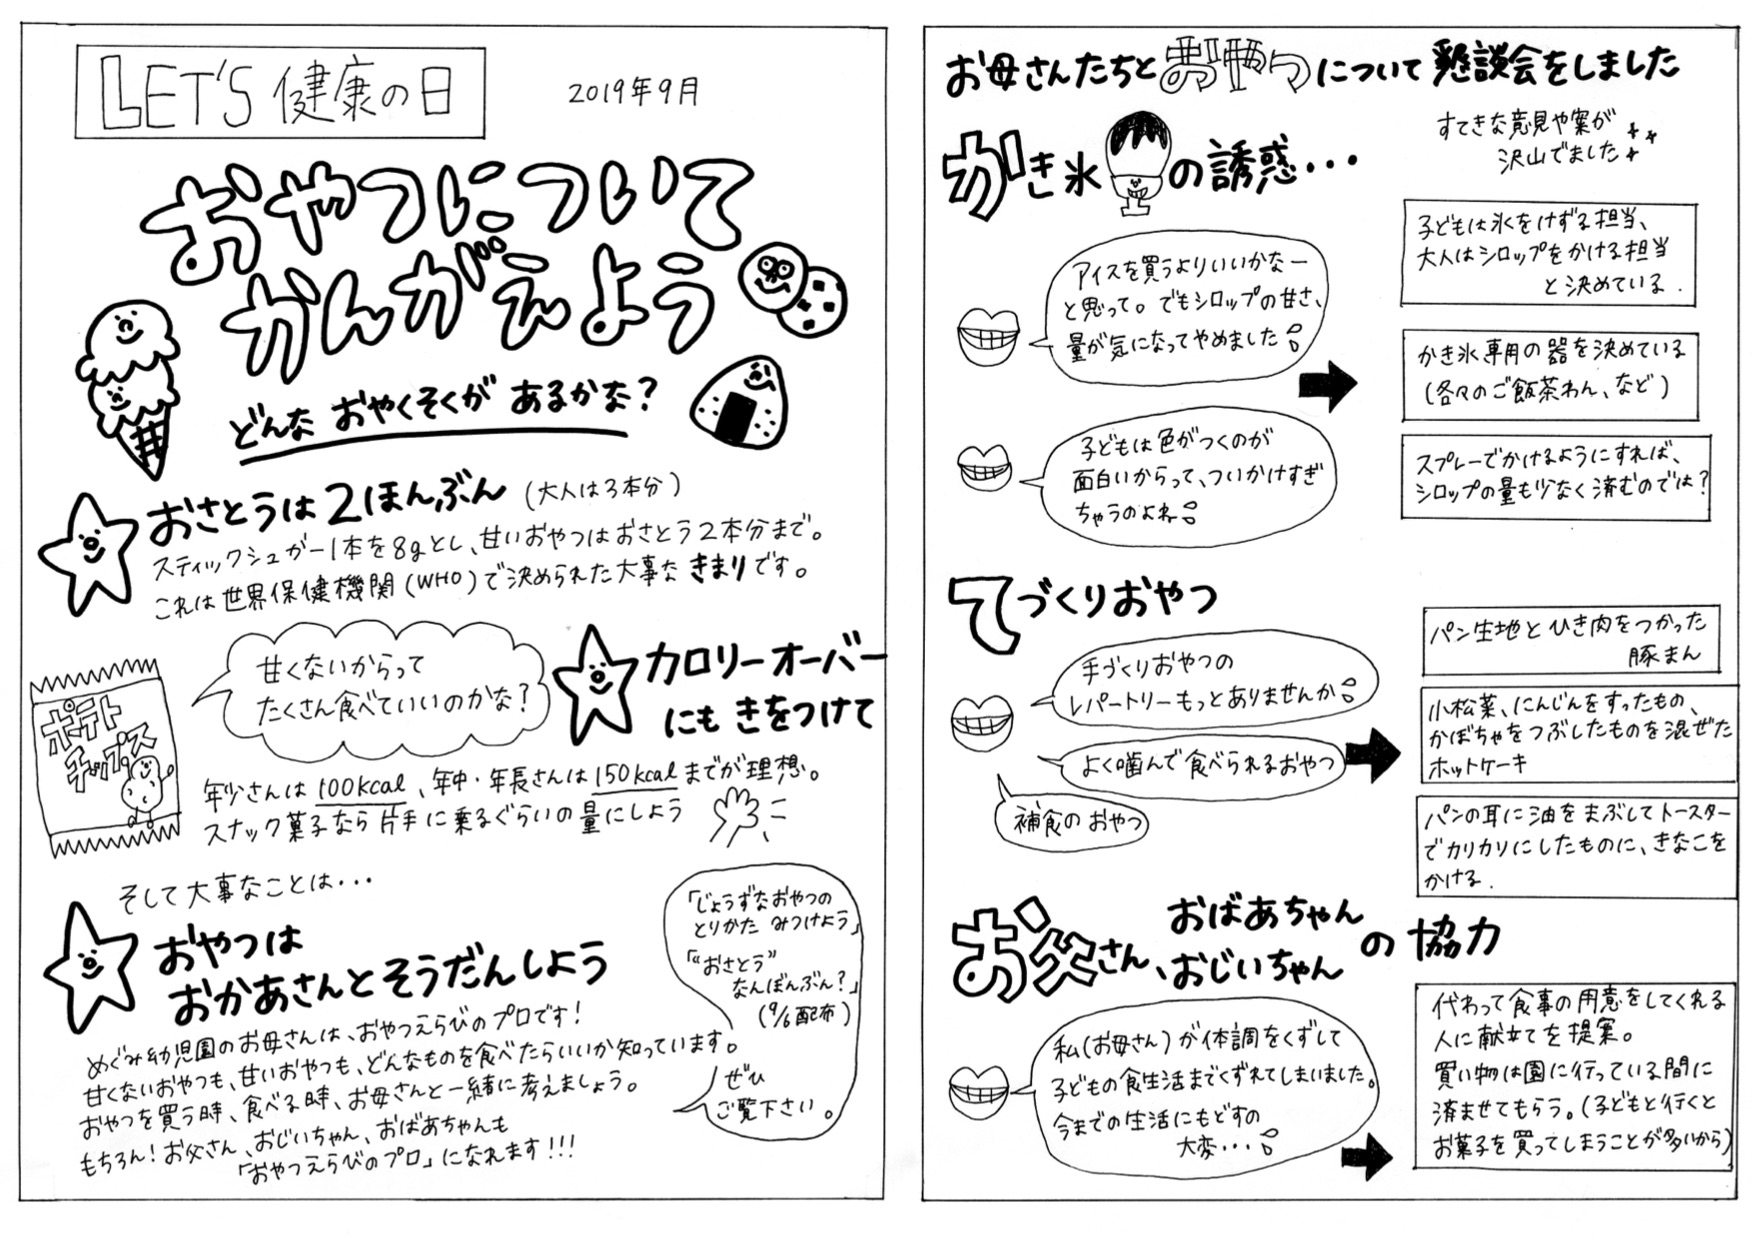 LET'S 健康の日
2019年9月
おやつについて
かんがえよう
どんな おやくそくが あるかな?
おさとうは2ほんぶん (大人は3本分)
スティックシュガー1本を8gとし、甘いおやつはおさとう2本分まで。
これは世界保健機関(WHO)で決められた大事なきまりです。
甘くないからって
たくさん食べていいのかな?
ポテト
チップス
カロリーオーバー
にも きをつけて
年少さんは100kcal、年中・年長さんは150kcalまでが理想。
スナック菓子なら片手に乗るぐらいの量にしよう
そして大事なことは・・・
おやつは
おかあさんとそうだんしよう
めぐみ幼児園のお母さんは、おやつえらびのプロです!
甘くないおやつも、甘いおやつも、どんなものを食べたらいいか知っています。
おやつを買う時、食べる時、お母さんと一緒に考えましょう。
もちろん!お父さん、おじいちゃん、おばあちゃんも
「おやつえらびのプロ」になれます!!!
「じょうずなおやつの
とりかた みつけよう」
「“おさとう”
なんぼんぶん?」
(9/6配布)
ぜひ
ご覧下さい。
お母さんたちとおやつについて懇談会をしました
すてきな意見や案が
沢山でました
かき氷の誘惑・・・
アイスを買うよりいいかなー
と思って。でもシロップの甘さ、
量が気になってやめました
子どもは色がつくのが
面白いからって、ついかけすぎ
ちゃうのよね
子どもは氷をけずる担当、
大人はシロップをかける担当
と決めている.
かき氷専用の器を決めている
(各々のご飯茶わん、など)
スプレーでかけるようにすれば、
シロップの量も少なく済むのでは?
てづくりおやつ
手づくりおやつの
レパートリーもっとありませんか
よく噛んで食べられるおやつ
補食のおやつ
パン生地とひき肉をつかった
豚まん
小松菜、にんじんをすったもの、
かぼちゃをつぶしたものを混ぜた
ホットケーキ
パンの耳に油をまぶしてトースター
でカリカリにしたものに、きなこを
かける.
お父さん、おばあちゃん
おじいちゃんの協力
私(お母さん)が体調をくずして
子どもの食生活までくずれてしまいました。
今までの生活にもどすの
大変・・・
代わって食事の用意をしてくれる
人に献立てを提案。
買い物は園に行っている間に
済ませてもらう。(子どもと行くと
お菓子を買ってしまうことが多いから)